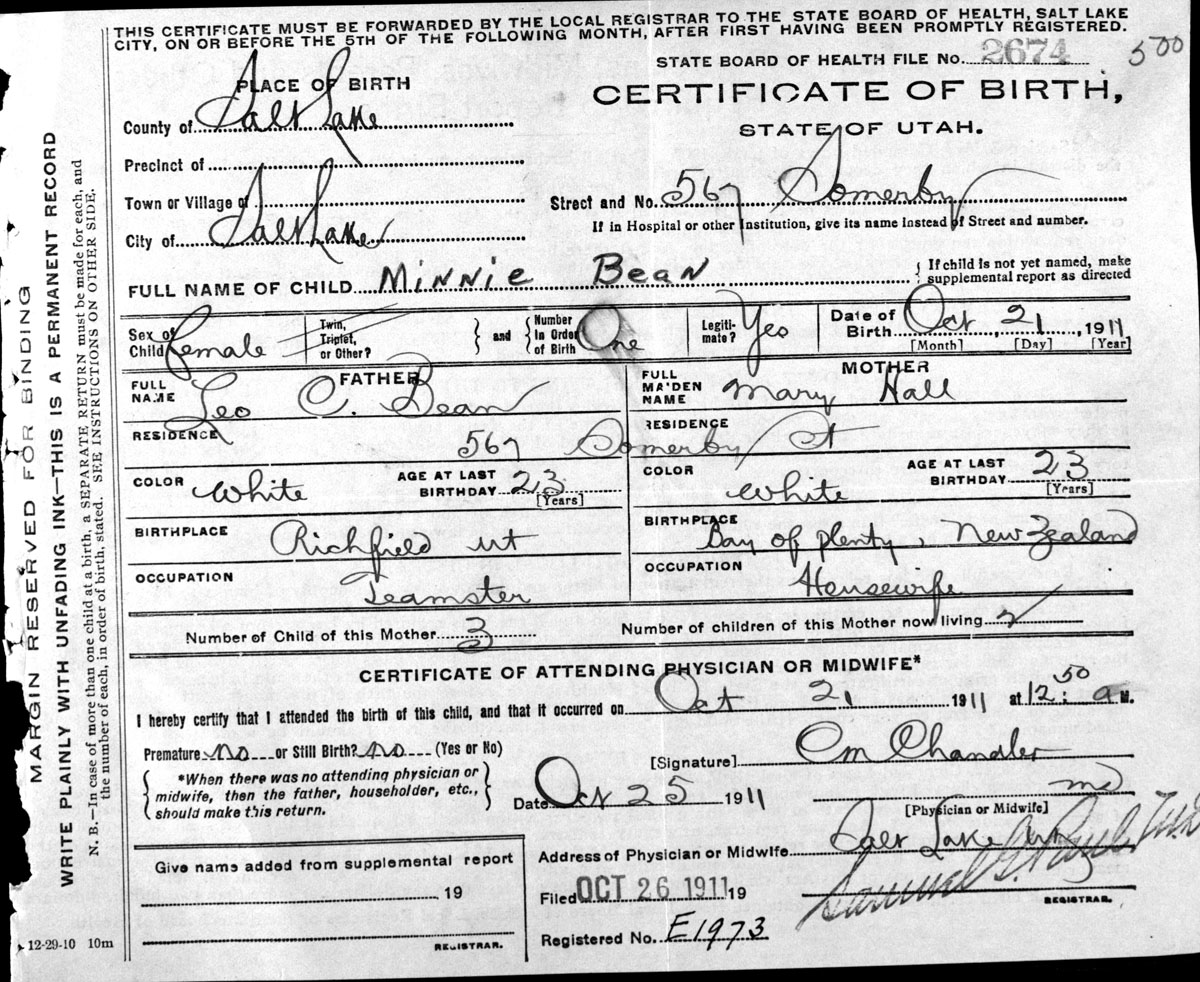 THIS CERTIFICATE MUST BE FORWARDED BY THE LOCAL REGISTRAR TO THE STATE BOARD OF HEALTH, SALT LAKE
CITY, ON OR BEFORE THE 5TH OF THE FOLLOWING MONTH, AFTER FIRST HAVING BEEN PROMPTLY REGISTERED.
STATE BOARD OF HEALTH FILE No. 2674 500
PLACE OF BIRTH
CERTIFICATE OF BIRTH,
STATE OF UTAH.
County of Salt Lake
Precinct of
Town or Village of
Street and No. 567 Somerby
City of Salt Lake
If in Hospital or other Institution, give its name instead of Street and number.
FULL NAME OF CHILD Minnie Bean { If child is not yet named, make supplemental report as directed
Sex of Child female
Twin, Triplet, or Other? } and { Number In Order of Birth One
Legiti-mate? Yes
Date of Birth Oct 21, 1911
[Month] [Day] [Year]
FATHER
FULL NAME Leo C. Bean
MOTHER
FULL MAIDEN NAME Mary Hall
RESIDENCE RESIDENCE
567 Somerby St
COLOR White AGE AT LAST BIRTHDAY 23 [Years]
COLOR White AGE AT LAST BIRTHDAY 23 [Years]
BIRTHPLACE Richfield ut
BIRTHPLACE Bay of plenty, New Zealand
OCCUPATION Teamster
OCCUPATION Housewife
Number of Child of this Mother 3
Number of children of this Mother now living 2
CERTIFICATE OF ATTENDING PHYSICIAN OR MIDWIFE*
I hereby certify that I attended the birth of this child, and that it occurred on Oct 21 1911 at 12:50 a M.
Premature no or Still Birth? no (Yes or No)
[Signature] Chandler
*When there was no attending physician or
midwife, then the father, householder, etc.,
should make this return.
Date Oct 25 1911
md
[Physician or Midwife]
Address of Physician or Midwife Salt Lake
Give name added from supplemental report
, 19
REGISTRAR.
Filed OCT 26 1911 19
Samuel G. Paul
REGISTRAR.
Registered No. E1973
12-29-10 10m
MARGIN RESERVED FOR BINDING
WRITE PLAINLY WITH UNFADING INK—THIS IS A PERMANENT RECORD
N. B.—In case of more than one child at a birth, a SEPARATE RETURN must be made for each, and
the number of each, in order of birth, stated. SEE INSTRUCTIONS ON OTHER SIDE.